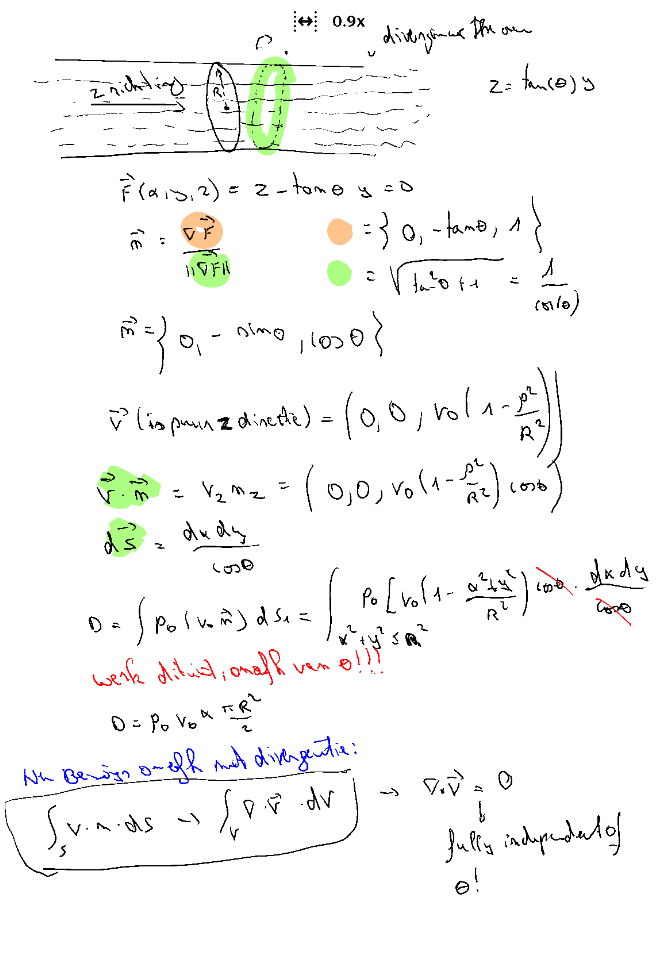 0.9x
divergence theorem
z richting
R
z = tan(θ) y
F⃗(x,y,z) = z - tanθ y = 0
n⃗ = ∇F⃗ / ||∇F⃗||
= {0, -tanθ, 1}
= √(tan²θ+1) = 1/cos(θ)
n⃗ = {0, -sinθ, cosθ}
v⃗ (is puur z directie) = (0, 0, v₀(1 - ρ²/R²))
v⃗·n⃗ = v_z n_z = (0, 0, v₀(1 - ρ²/R²) cosθ)
ds⃗ = dx dy / cosθ
D = ∫ρ₀(v₀n⃗) ds₁ = ∫_{x²+y² ≤ R²} ρ₀[v₀(1 - (x²+y²)/R²) cosθ · dx dy / cosθ
werk dit uit, onafh van θ!!!
D = ρ₀ v₀ x πR²/2
Nu Bewijs onafh met divergentie:
∫_s v·n·ds → ∫_V ∇·v⃗ · dV → ∇·v⃗ = 0
↓
fully independent of
θ!